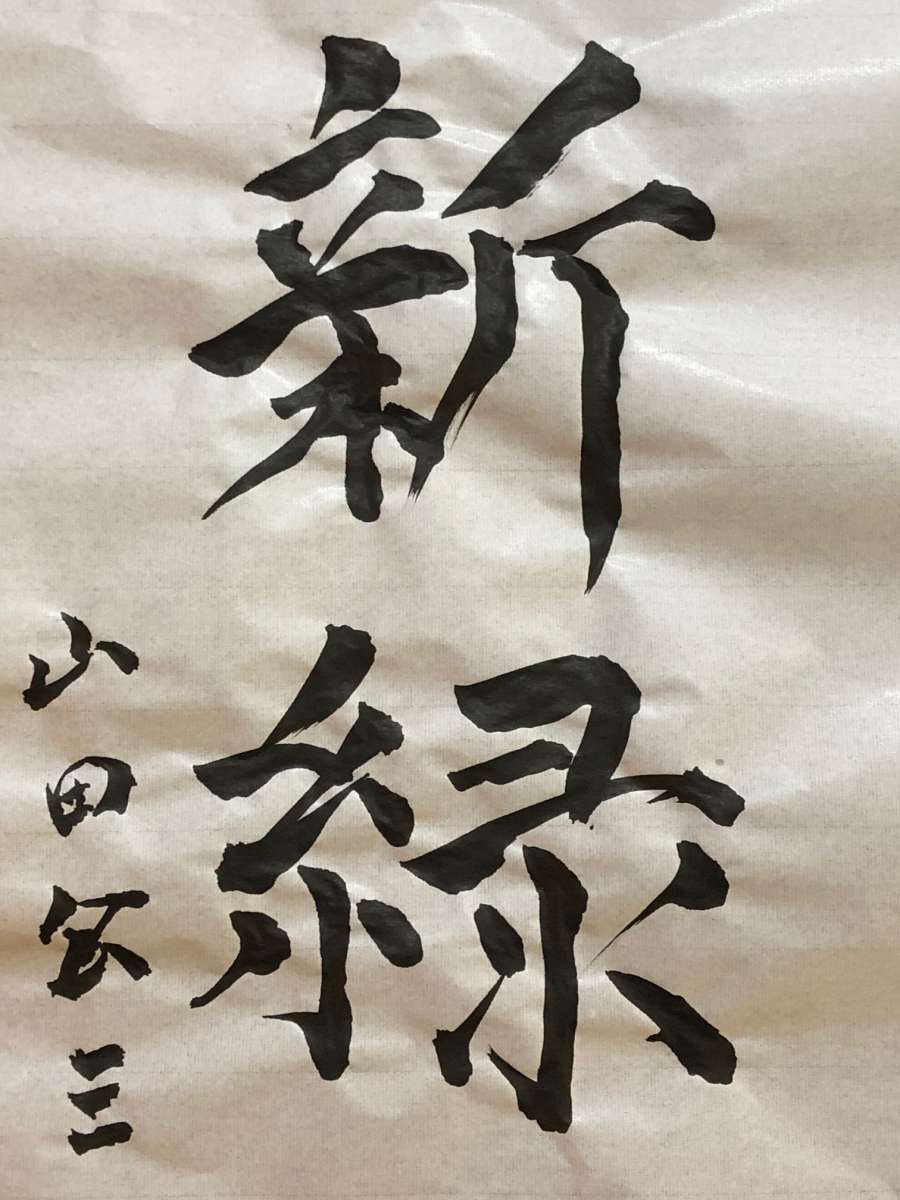 新緑
山田宏三